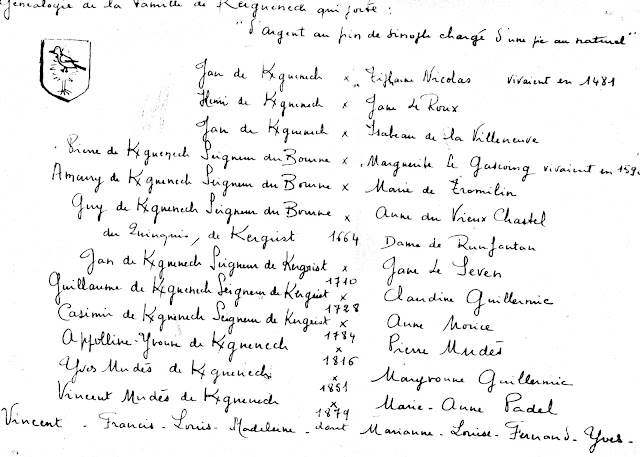 Généalogie de la famille de Kerguenech qui porte :
"d'argent au pin de sinople chargé d'une pie au naturel"
Jan de Kxguenech x Tiphaine Nicolas vivaient en 1481
Henri de Kxguenech x Jane Le Roux
Jan de Kxguenech x Isabeau de la Villeneuve
Pierre de Kxguenech Seigneur du Bourne x Marguerite Le Gascoing vivaient en 159
Amaury de Kxguenech Seigneur du Bourne x Marie de Tromilin
Guy de Kxguenech Seigneur du Bourne x Anne du Vieux Chastel
du Quinquis, de Kergrist 1664 Dame de Runfantan
Jan de Kxguenech Seigneur de Kergrist x Jane Le Seven
1710
Guillaume de Kxguenech Seigneur de Kergrist x Claudine Guillermic
1728
Casimir de Kxguenech Seigneur de Kergrist x Anne Morice
1784
Apolline-Yvonne de Kxguenech x Pierre Mudès
1816
Yves Mudès de Kxguenech x Maryvonne Guillermic
1851
Vincent Mudès de Kxguenech x Marie-Anne Padel
1879
Vincent - Francis - Louis - Madeleine - dont Marianne - Louise - Fernand - Yves -